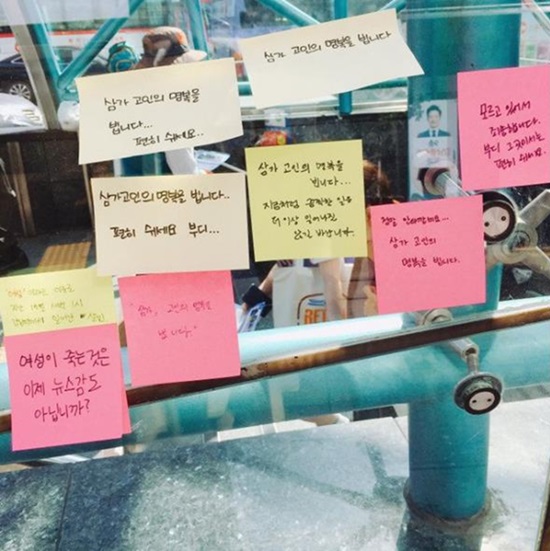 삼가 고인의 명복을 빕니다
삼가 고인의 명복을
빕니다...
편히 쉬세요..
모르고 있어서
죄송합니다.
부디 그곳에서는
편히 쉬세요.
삼가 고인의 명복을
빕니다...
지금처럼 끔찍한 일은
더 이상 일어나질
않길 바랍니다.
삼가고인의 명복을 빕니다..
편히 쉬세요 부디...
정말 안타깝네요...
삼가 고인의
명복을 빕니다.
"삼가, 고인의 명복을
빕니다."
여성이 죽는것은
이제 뉴스감도
아닙니까?